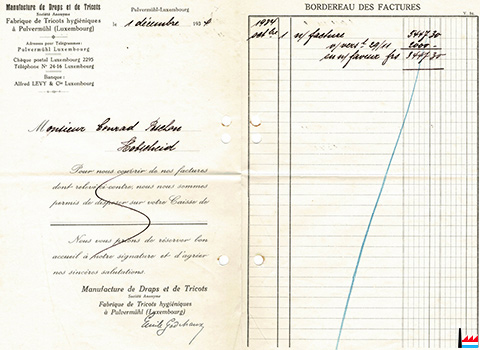 Manufacture de Draps et de Tricots
Société Anonyme
Fabrique de Tricots hygiéniques
à Pulvermühl (Luxembourg)
Adresse pour Télégrammes:
Pulvermühl-Luxembourg
Chèque postal Luxembourg 2295
Téléphone Nº 24-56 Luxembourg
Banque:
Alfred LEVY & Cie Luxembourg
Pulvermühl-Luxembourg
le 1 décembre 1934
Monsieur Conrad
Hobscheid
Pour nous couvrir de nos factures
dont relevé ci-contre, nous nous sommes
permis de disposer sur votre Caisse de
Nous vous prions de réserver bon
accueil à notre signature et d'agréer
nos sincères salutations.
Manufacture de Draps et de Tricots
Société Anonyme
Fabrique de Tricots hygiéniques
à Pulvermühl (Luxembourg)
BORDEREAU DES FACTURES
1934
1 n/ facture 5447.30
v/ vers t 29/11 2000.-
in n/ faveur frs 3447.30